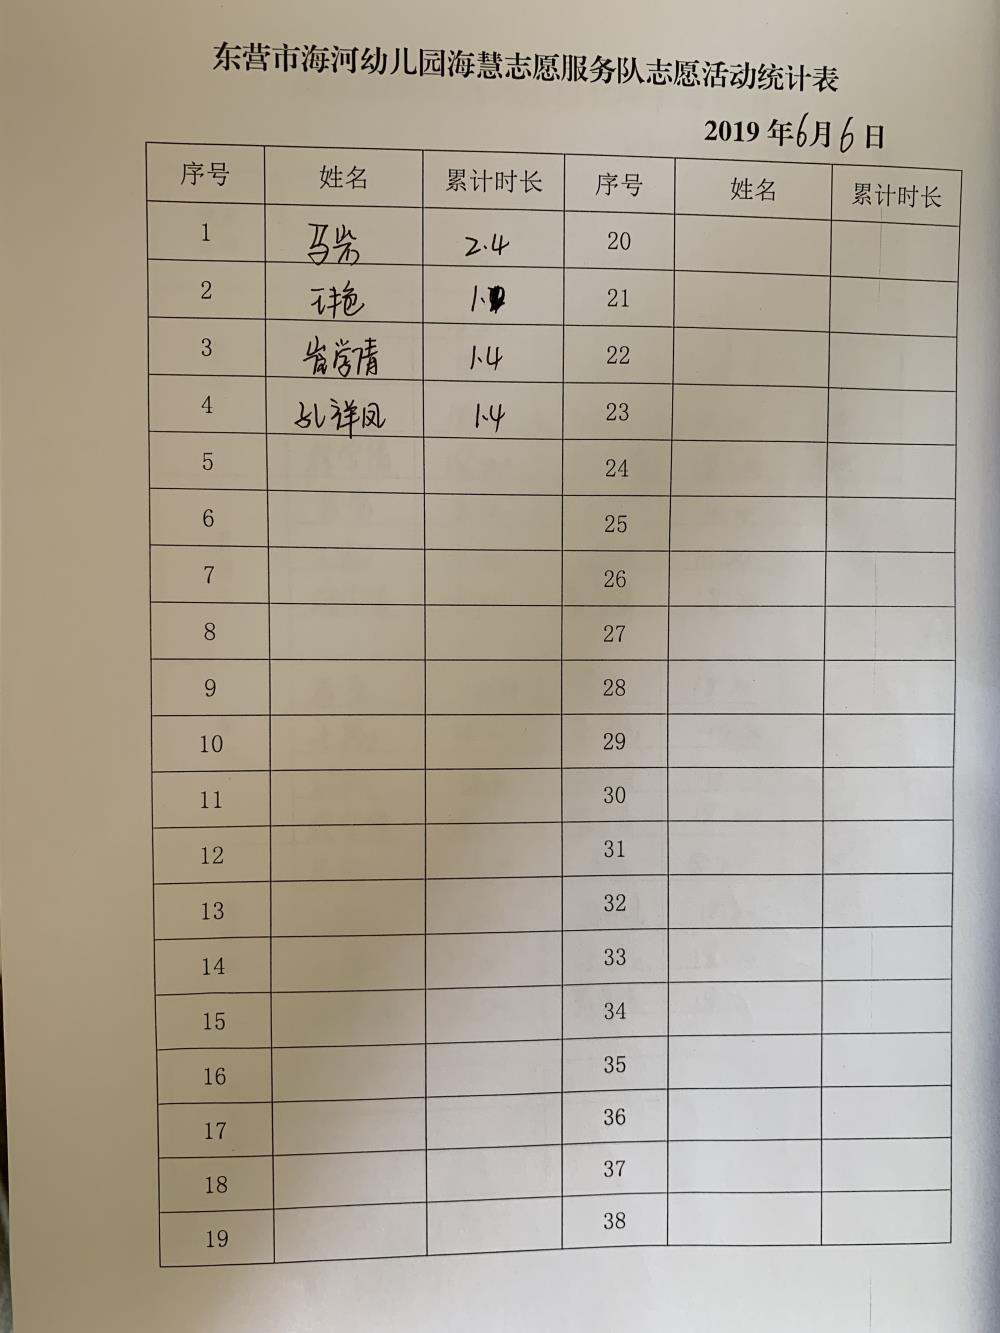 东营市海河幼儿园海慧志愿服务队志愿活动统计表
2019 年6月6日
序号 姓名 累计时长 序号 姓名 累计时长
1 马岩 2.4 20
2 1. 21
3 1.4 22
4 孔祥凤 1.4 23
5 24
6 25
7 26
8 27
9 28
10 29
11 30
12 31
13 32
14 33
15 34
16 35
17 36
18 37
19 38